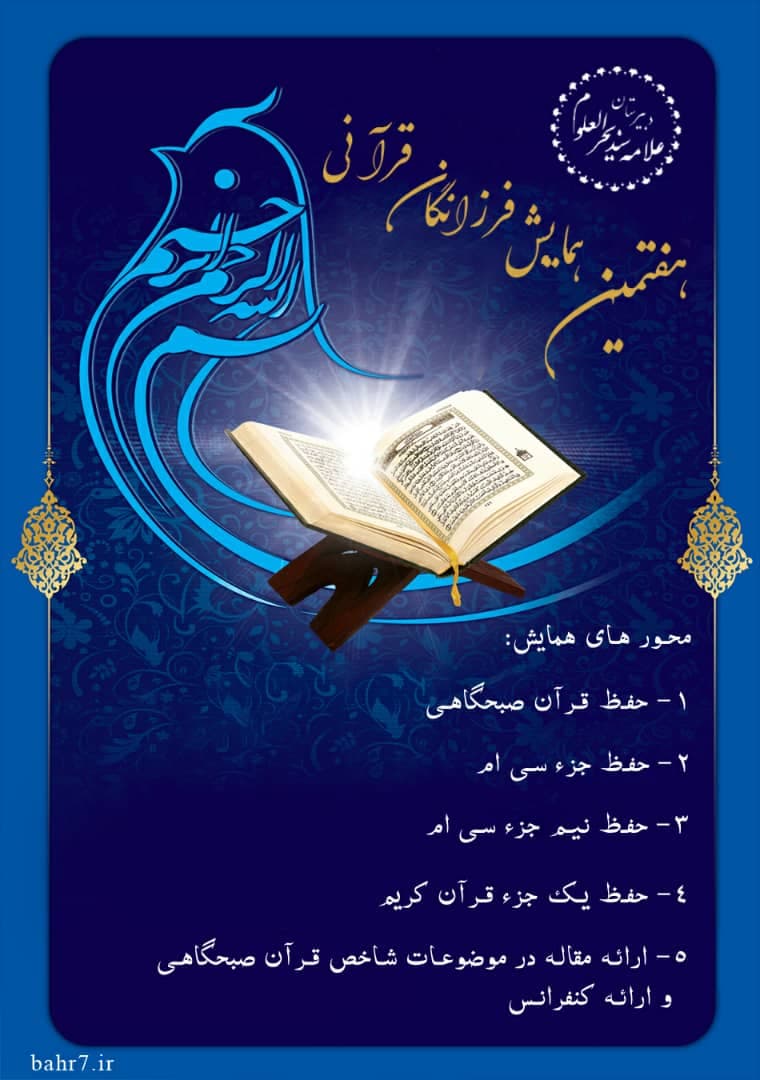 دبیرستان
علامه سید بحرالعلوم
هفتمین همایش فرزانگان قرآنی
بسم الله الرحمن الرحیم
محور های همایش:
۱- حفظ قرآن صبحگاهی
۲- حفظ جزء سی ام
۳- حفظ نیم جزء سی ام
٤- حفظ یک جزء قرآن کریم
۵- ارائه مقاله در موضوعات شاخص قرآن صبحگاهی
و ارائه کنفرانس
bahr7.ir